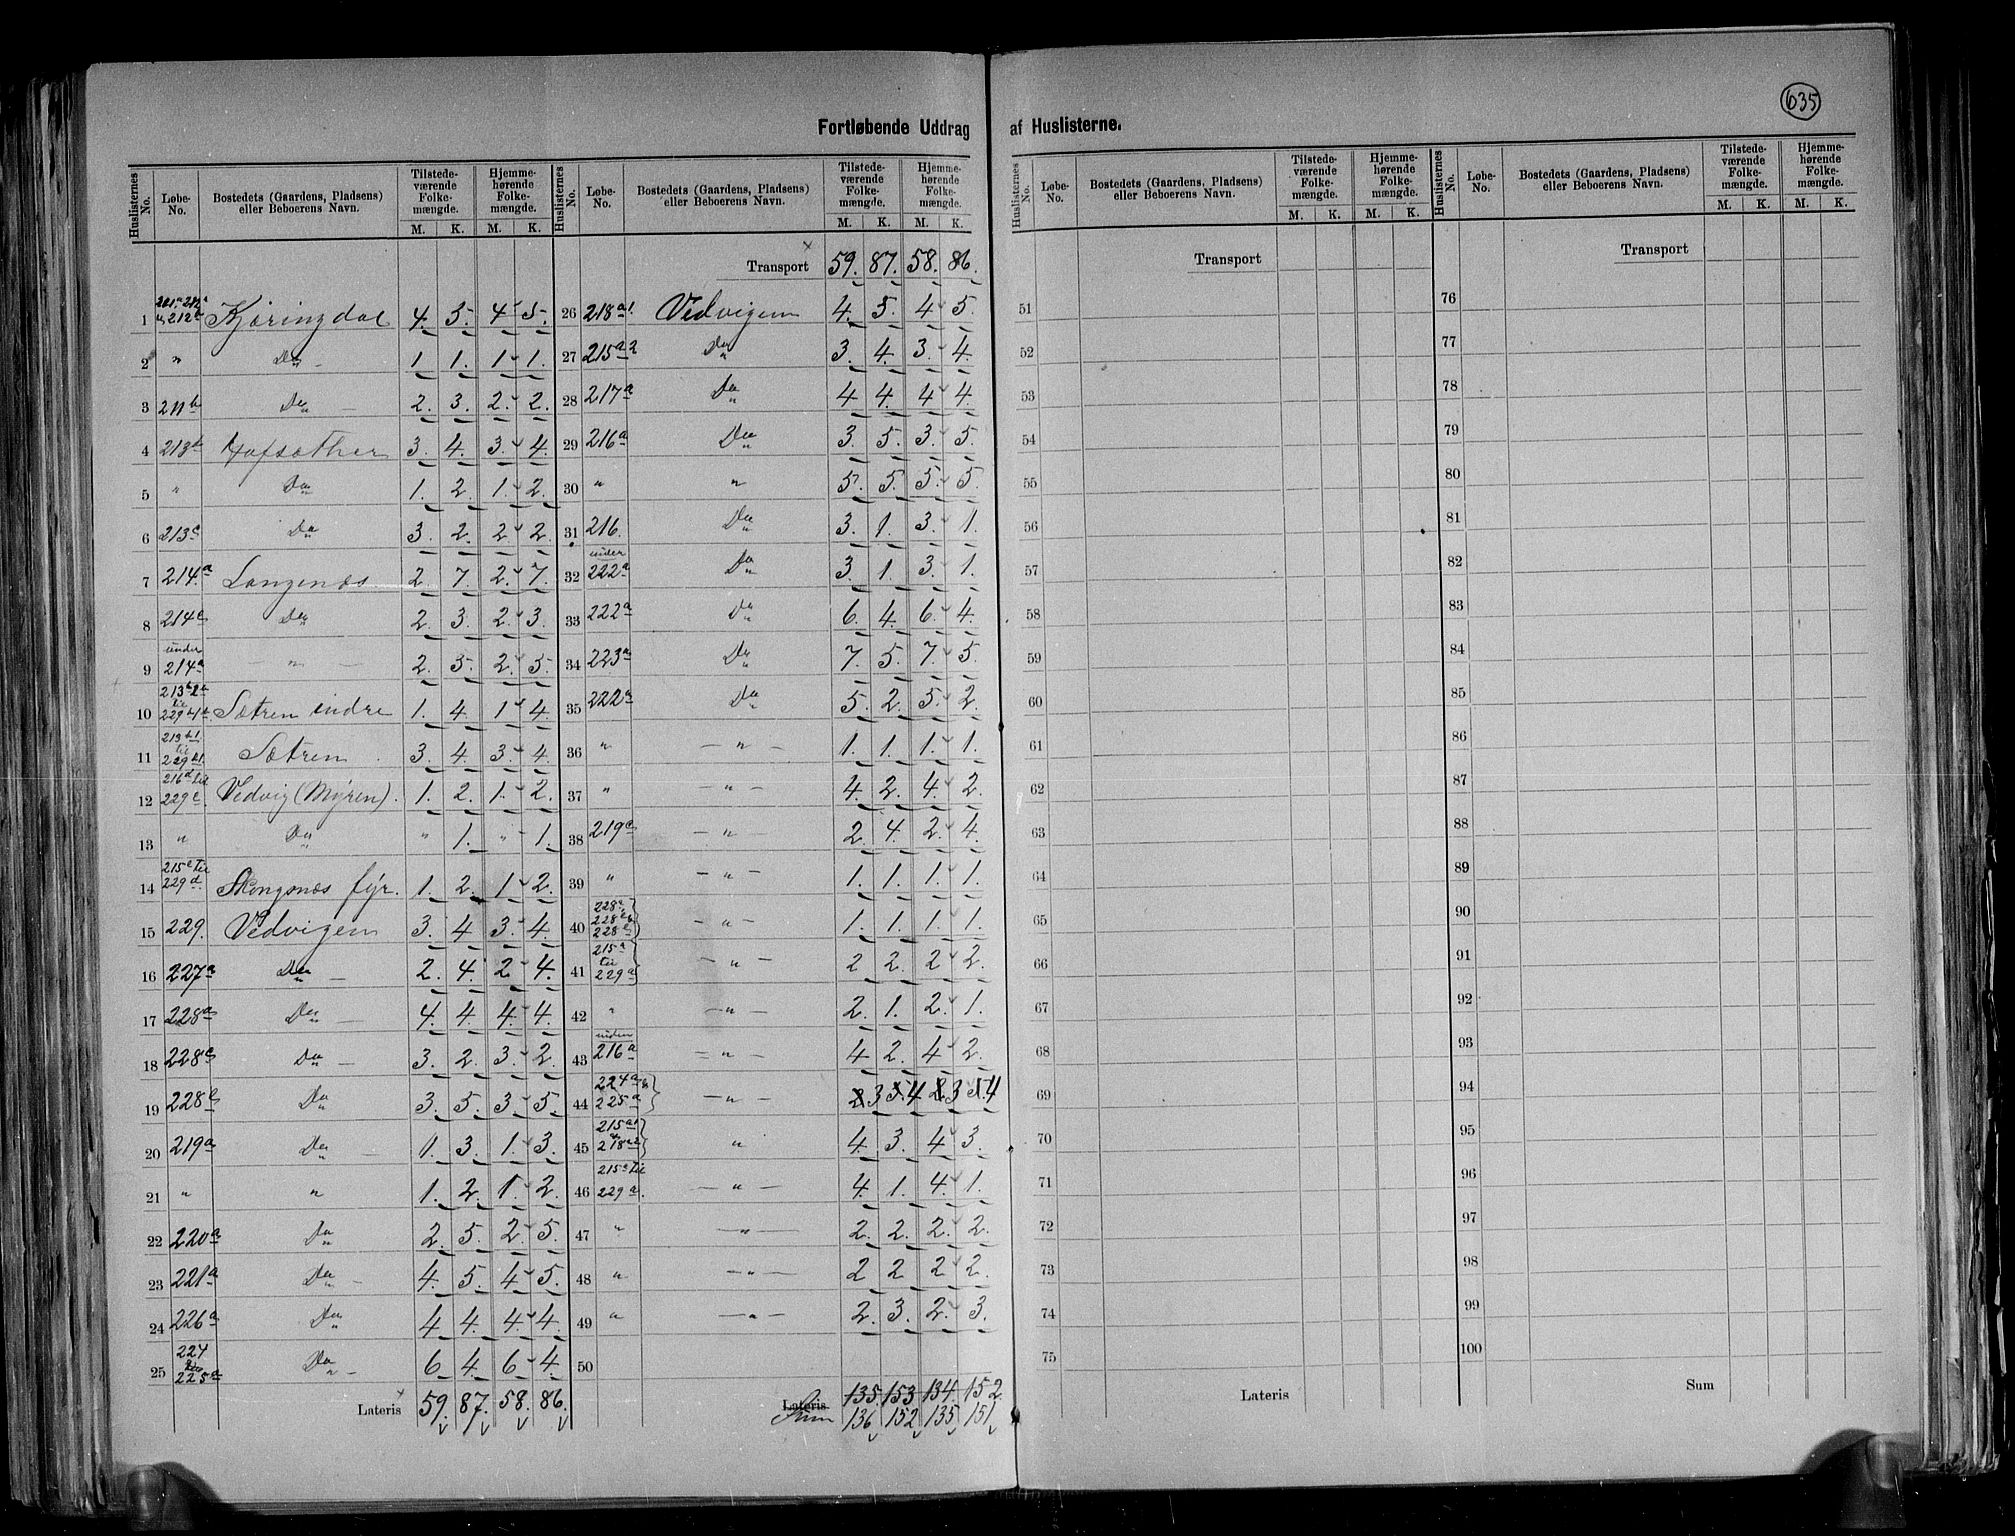 635
Fortløbende Uddrag af Huslisterne.
Huslisternes No. | Løbe-No. | Bostedets (Gaardens, Pladsens) eller Beboerens Navn. | Tilstedeværende Folkemængde. M. K. | Hjemmehørende Folkemængde. M. K.
1 | 212a | Kjæringdal | 4. 5. 4. 5.
2 | " | Do | 1. 1. 1. 1.
3 | 211b | Do | 2. 3. 2. 2.
4 | 213b | Hofsæther | 3. 4. 3. 4.
5 | " | Do | 1. 2. 1. 2.
6 | 213c | Do | 3. 2. 2. 2.
7 | 214a | Langenæs | 2. 7. 2. 7.
8 | 214c | Do | 2. 3. 2. 3.
9 | under 214a | — " — | 2. 5. 2. 5.
10 | Sætren indre | 1. 4. 1. 4.
11 | 213b1 til 229b1. | Sætren | 3. 4. 3. 4.
12 | 216d til 229c. | Vedvig (Myren). | 1. 2. 1. 2.
13 | " | Do | " 1. " 1.
14 | 215c til 229d. | Skongsnæs fyr. | 1. 2. 1. 2.
15 | 229. | Vedvigen | 3. 4. 3. 4.
16 | 227a | Do | 2. 4. 2. 4.
17 | 228a | Do | 4. 4. 4. 4.
18 | 228c | Do | 3. 2. 3. 2.
19 | 228b | Do | 3. 5. 3. 5.
20 | 219a | Do | 1. 3. 1. 3.
21 | " | " | 1. 2. 1. 2.
22 | 220a | Do | 2. 5. 2. 5.
23 | 221a | Do | 4. 5. 4. 5.
24 | 226a | Do | 4. 4. 4. 4.
25 | 224 225a | Do | 6. 4. 6. 4.
Lateris 59. 87. 58. 86.
Huslisternes No. | Løbe-No. | Bostedets (Gaardens, Pladsens) eller Beboerens Navn. | Tilstedeværende Folkemængde. M. K. | Hjemmehørende Folkemængde. M. K.
Transport 59. 87. 58. 86.
26 | 218a1. | Vedvigen | 4. 5. 4. 5.
27 | 215a2 | Do | 3. 4. 3. 4.
28 | 217a | Do | 4 4. 4 4.
29 | 216a | Do | 3. 5. 3. 5.
30 | " | " | 5. 5. 5. 5.
31 | 216. | Do | 3. 1. 3. 1.
32 | under 222a | Do | 3. 1. 3. 1.
33 | 222a | Do | 6. 4. 6. 4.
34 | 223a | Do | 7. 5. 7. 5.
35 | 222a | Do | 5. 2. 5. 2.
36 | " | — " — | 1. 1. 1. 1.
37 | " | — " — | 4. 2. 4. 2.
38 | 219c | — " | 2. 4. 2. 4.
39 | " | — " — | 1. 1. 1. 1.
40 | 228a 228b 228c | — " — | 1. 1. 1. 1.
41 | 215a til 229a | — " — | 2 2. 2 2.
42 | " | — " — | 2. 1. 2. 1.
43 | under 216a | — " — | 4 2. 4 2.
44 | 224a 225a | — " — | 3 4 3 4
45 | 215a1 218a2 | " | 4. 3. 4. 3.
46 | 215c til 229a. | — " — | 4. 1. 4. 1.
47 | " | — " — | 2. 2. 2. 2.
48 | " | — " — | 2 2 2 2.
49 | " | — " — | 2. 3. 2. 3.
50
Lateris 135. 153 134. 152.
Sum 136 152 135 151
Huslisternes No. | Løbe-No. | Bostedets (Gaardens, Pladsens) eller Beboerens Navn. | Tilstedeværende Folkemængde. M. K. | Hjemmehørende Folkemængde. M. K.
Transport
51
52
53
54
55
56
57
58
59
60
61
62
63
64
65
66
67
68
69
70
71
72
73
74
75
Lateris
Huslisternes No. | Løbe-No. | Bostedets (Gaardens, Pladsens) eller Beboerens Navn. | Tilstedeværende Folkemængde. M. K. | Hjemmehørende Folkemængde. M. K.
Transport
76
77
78
79
80
81
82
83
84
85
86
87
88
89
90
91
92
93
94
95
96
97
98
99
100
Sum